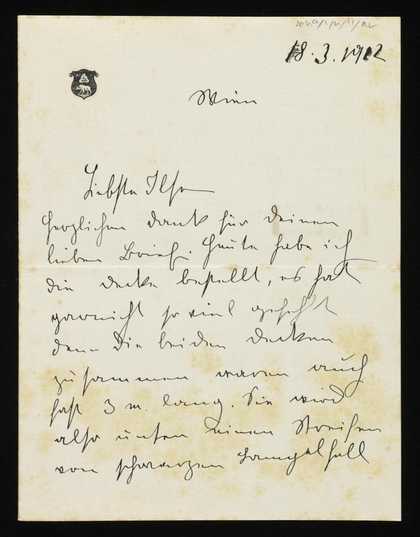 18.3.1912
Wien
Liebste Ilse
herzlichen Dank für Deinen
lieben Brief. Heute habe ich
die Decke bestellt, es hat
garnicht so viel gefehlt
denn die beiden Decken
zusammen waren auch
fast 3 m. lang. Sie wird
also unten einen Streifen
von schwarzem